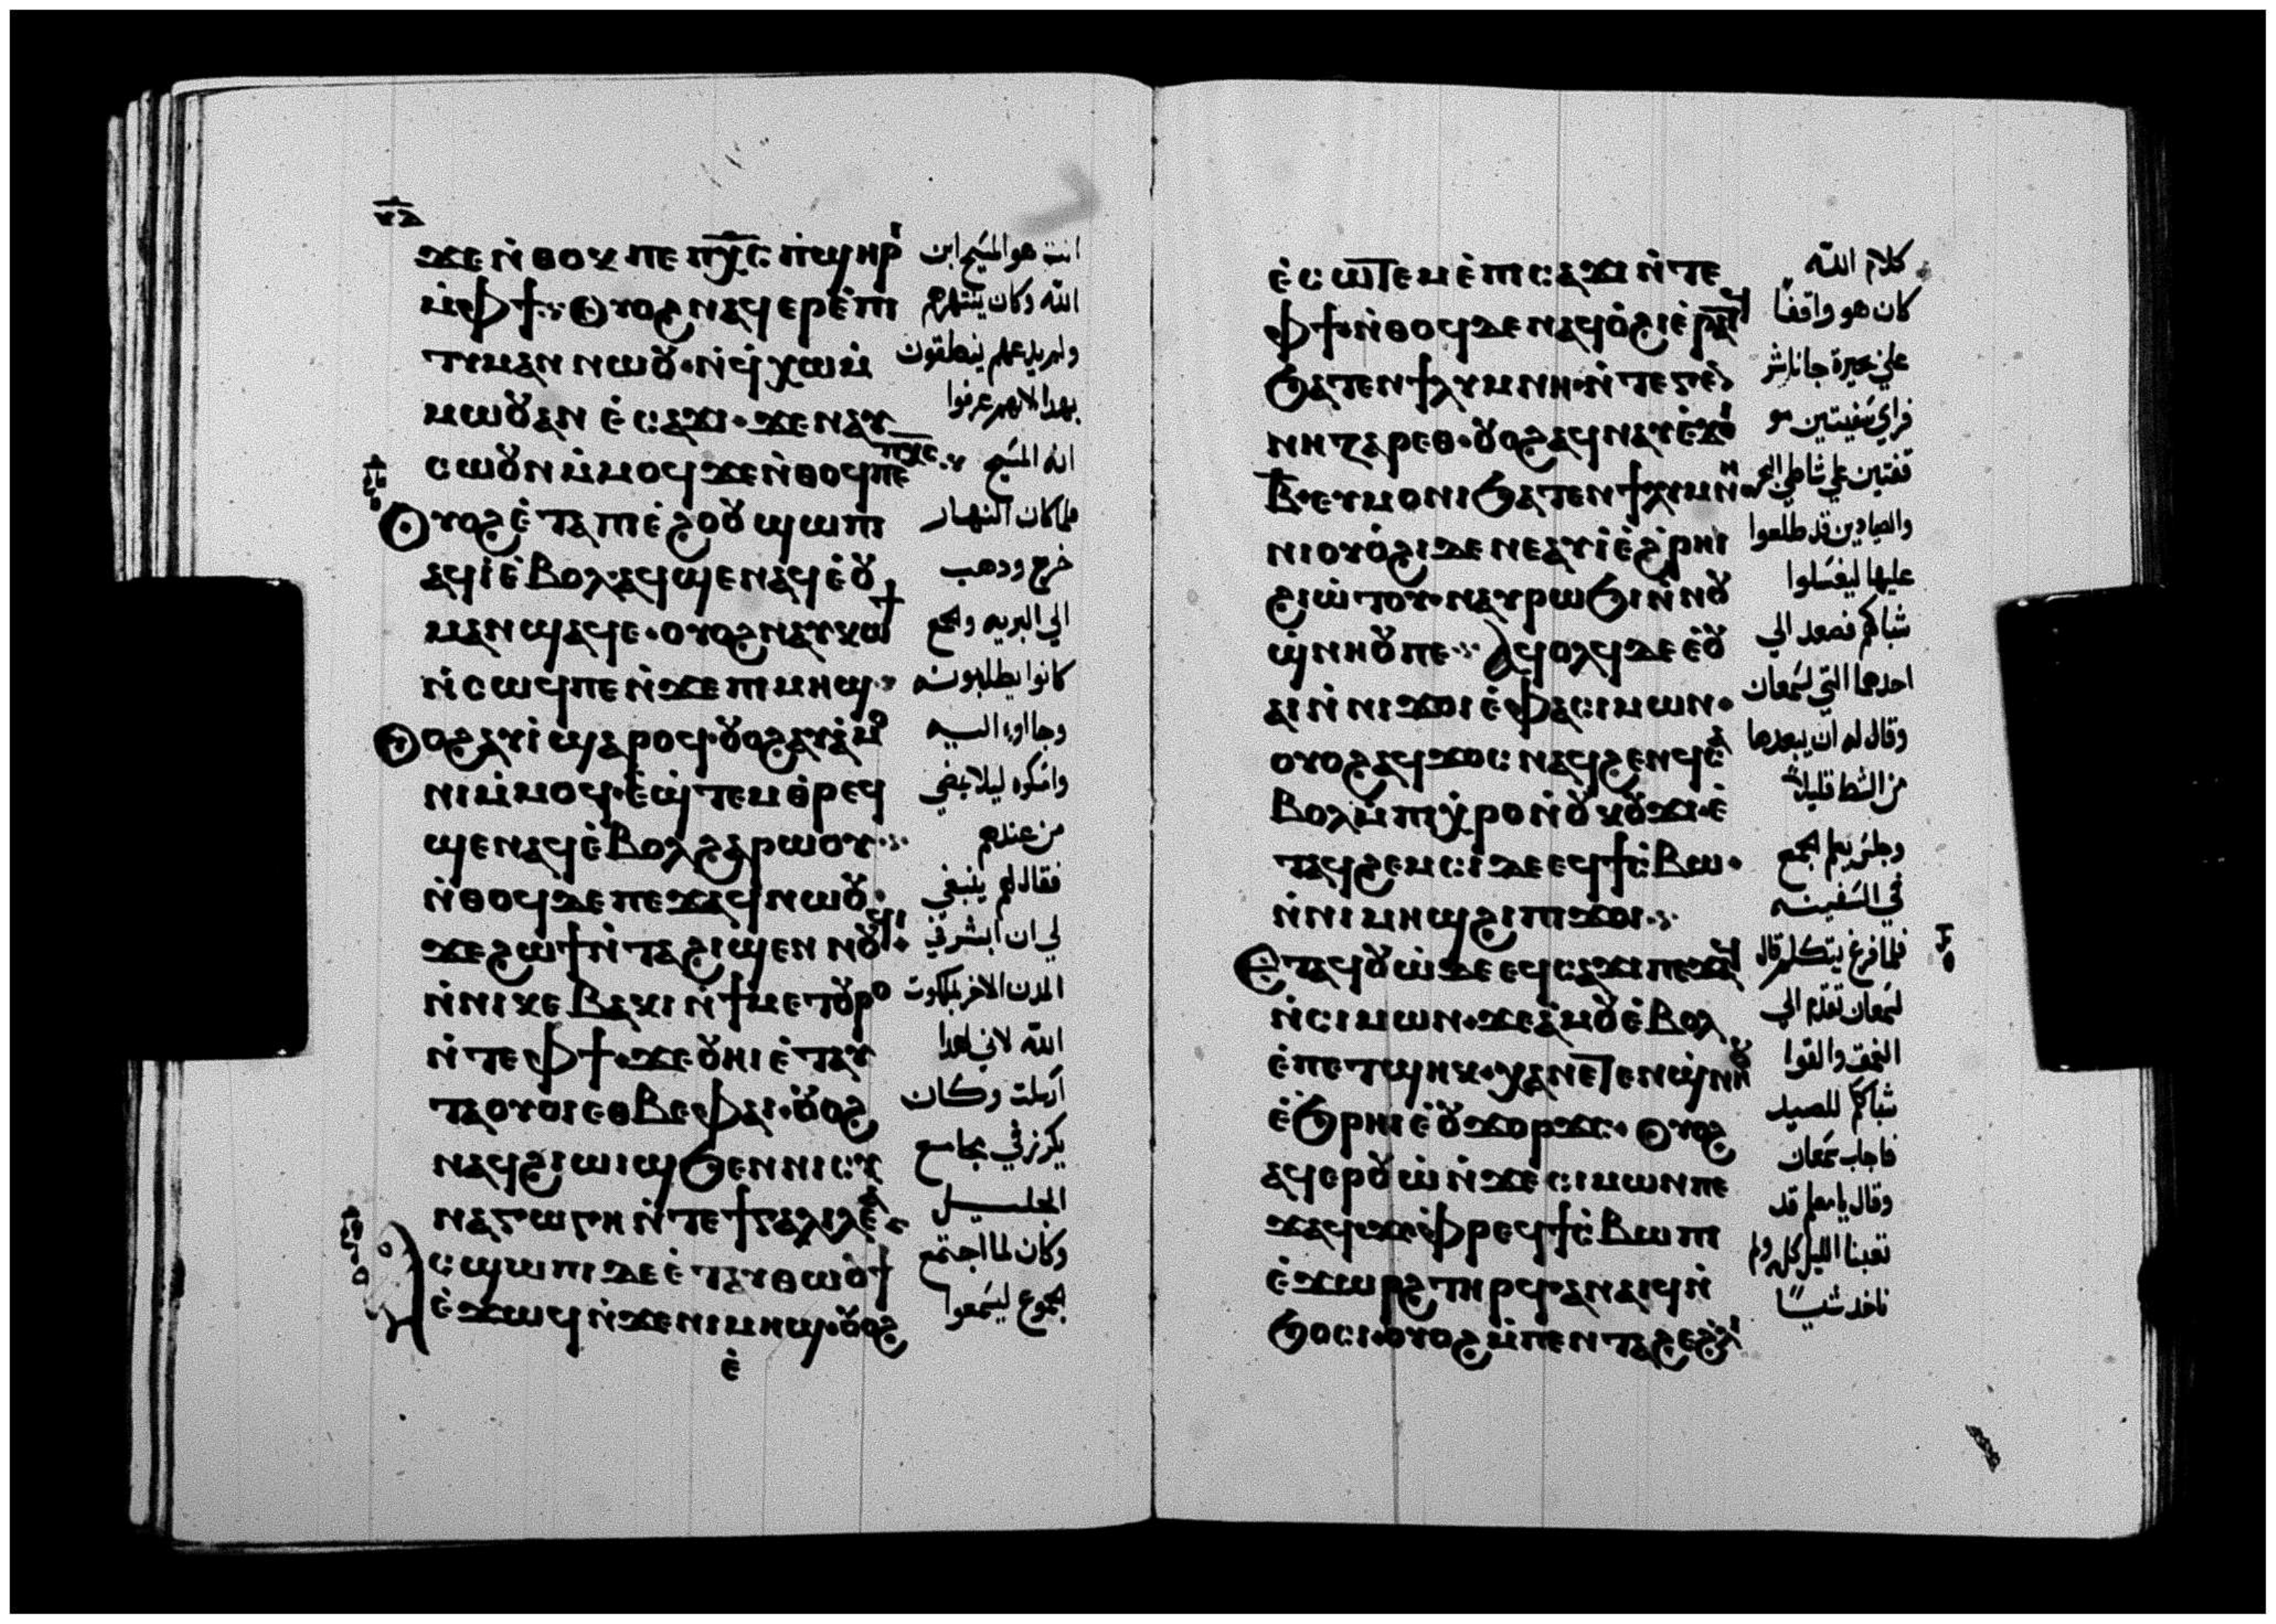 ϫⲉ ⲛ̇ⲑⲟⲕ ⲡⲉ ⲡⲭ̅ⲥ ⲡ̇ϣⲏⲣⲓ
ⲙ̇ⲫϯ ⲟⲩⲟϩ ⲛⲁϥⲉⲣⲉ̇ⲡⲓ
ⲧⲓⲙⲁⲛ ⲛⲱⲟⲩ· ⲛ̇ϥ̇ⲭⲱ ⲙ̇
ⲙⲱⲟⲩ ⲁⲛ ⲉ̇ⲥⲁϫⲓ· ϫⲉ ⲛⲁⲩ
ⲥⲱⲟⲩⲛ ⲙ̇ⲙⲟϥ ϫⲉ ⲛ̇ⲑⲟϥ ⲡⲉ ⲡⲭ̅ⲥ
ⲟⲩⲟϩ ⲉ̇ⲧⲁ ⲡⲓⲉ̇ϩⲟⲟⲩ ϣⲱⲡⲓ
ⲁϥⲓ̇ ⲉ̇ⲃⲟⲗ ⲁϥϣⲉⲛⲁϥ ⲉ̇ⲟⲩ
ⲙⲁⲛϣⲁϥⲉ· ⲟⲩⲟϩ ⲛⲁⲩⲕⲱϯ
ⲛ̇ⲥⲱϥ ⲡⲉ ⲛ̇ϫⲉ ⲡⲓⲙⲏϣ
ⲟⲩⲟϩ ⲁⲩⲓ̇ ϣⲁⲣⲟϥ· ⲟⲩⲟϩ ⲁⲩⲁ̇ⲙⲟ
ⲛⲓ ⲙ̇ⲙⲟϥ· ⲉ̇ϣ̇ⲧⲉⲙⲑ̇ⲣⲉϥ
ϣⲉⲛⲁϥ ⲉ̇ⲃⲟⲗ ϩⲁⲣⲱⲟⲩ
ⲛ̇ⲑⲟϥ ⲇⲉ ⲡⲉϫⲁϥ ⲛⲱⲟⲩ·
ϫⲉ ϩⲱϯ ⲛ̇ⲧⲁϩⲓϣⲉⲛⲛⲟⲩϥⲓ
ⲛ̇ⲛⲓⲕⲉⲃⲁⲕⲓ ⲛ̇ϯⲙⲉⲧⲟⲩⲣⲟ
ⲛ̇ⲧⲉ ⲫϯ· ϫⲉ ⲟⲩⲏⲓ ⲉ̇ⲧⲁⲩ
ⲧⲁⲟⲩⲟⲓ ⲉⲑⲃⲉ ⲫⲁⲓ· ⲟⲩⲟϩ
ⲛⲁϥϩⲓⲱⲓϣ ϧⲉⲛ ⲛⲓⲥⲩ
ⲛⲁⲅⲱⲅⲏ ⲛ̇ⲧⲉ ϯⲅⲁⲗⲓⲗⲉⲁ̇
ⲁⲥϣⲱⲡⲓ ⲇⲉ ⲉ̇ⲧⲁⲩⲑⲱⲟⲩϯ
ⲉ̇ϫⲱϥ ⲛ̇ϫⲉ ⲛⲓⲙⲏϣ· ⲟⲩⲟϩ
ⲉ̇
انت هو المسيح ابن
الله وكان ينتهرهم
ولم يدعهم ينطقون
بهدا لانهم عرفوا
انه المسيح
فلما كان النهار
خرج ودهب
الي البريه والجمع
كانوا يطلبونه
وجااوا اليه
وامسكوه ليلا يمضي
من عندهم
فقال لهم ينبغي
لي ان ابشر في
المدن الاخر بملكوت
الله لاني لهدا
ارسلت وكان
يكرز في مجامع
الجليل
وكان لما اجتمع
الجموع ليسمعوا
ⲉ̇ⲥⲱⲧⲉⲙ ⲉ̇ⲡⲓⲥⲁϫⲓ ⲛ̇ⲧⲉ
ⲫϯ· ⲛ̇ⲑⲟϥ ⲇⲉ ⲛⲁϥⲟ̇ϩⲓ ⲉ̇ⲣⲁⲧϥ
ϧⲁⲧⲉⲛ ϯⲗⲩⲙⲛⲏ· ⲛ̇ⲧⲉ ⲅⲉⲛ
ⲛⲏⲍⲁⲣⲉⲑ· ⲟⲩⲟϩ ⲁϥⲛⲁⲩ ⲉ̇ϫⲟⲓ
ⲃ̅· ⲉⲩⲙⲟⲛⲓ ϧⲁⲧⲉⲛ ϯⲗⲩⲙⲛⲏ
ⲛⲓⲟⲩⲟ̇ϩⲓ ⲇⲉ ⲛⲉ ⲁⲩⲓ̇ ⲉ̇ϩ̇ⲣⲏⲓ
ϩⲓⲱ̇ⲧⲟⲩ· ⲛⲁⲩⲣⲱϧⲓ ⲛ̇ⲛⲟⲩ
ϣ̇ⲛⲏⲟⲩ ⲡⲉ ⲁϥⲟⲗϥ ⲇⲉ ⲉ̇ⲟⲩ
ⲁⲓ ⲛ̇ⲛⲓϫⲟⲓ ⲉ̇ⲫⲁ ⲥⲓⲙⲱⲛ·
ⲟⲩⲟϩ ⲁϥϫⲟⲥ ⲛⲁϥ ϩⲉⲛϥ ⲥⲁ̇
ⲃⲟⲗ ⲙ̇ⲡⲓⲭ̇ⲣⲟ ⲛ̇ⲟⲩⲕⲟⲩϫⲓ· ⲉ̇
ⲧⲁϥϩⲉⲙⲥⲓ ⲇⲉ ⲉϥϯⲥ̇ⲃⲱ·
ⲛ̇ⲛⲓⲙⲏϣ ϩⲓ ⲡⲓϫⲟⲓ
ⲉⲧⲁϥⲟⲩⲱ̇ ⲇⲉ ⲉϥⲥⲁϫⲓ ⲡⲉϫⲁϥ
ⲛ̇ⲥⲓⲙⲱⲛ· ϫⲉ ⲁ̇ⲙⲟⲩ ⲉ̇ⲃⲟⲗ
ⲉ̇ⲡⲉⲧϣⲏⲕ· ⲭⲁ ⲛⲉⲧⲉⲛϣ̇ⲛⲏⲟⲩ
ⲉ̇ϧⲣⲏⲓ ⲉ̇ⲟⲩϫⲟⲣϫⲥ· ⲟⲩⲟϩ
ⲁϥⲉⲣⲟⲩⲱ̇ ⲛ̇ϫⲉ ⲥⲓⲙⲱⲛ ⲡⲉ
ϫⲁϥ ϫⲉ ⲫ̇ⲣⲉϥϯⲥ̇ⲃⲱ ⲡⲓ
ⲉ̇ϫⲱⲣϩ ⲧⲏⲣϥ· ⲁⲛⲁⲓϥ ⲛ̇
ϧⲟⲥⲓ· ⲟⲩⲟϩ ⲙ̇ⲡⲉⲛⲧⲁϩⲉ ϩ̇ⲗⲓ
كلام الله
كان هو واقفا
علي بحيرة جاناشر
فراي سفينتين مو
قفتين علي شاطي البحر
والصيادين قد طلعوا
عليها ليغسلوا
شباكهم فصعد الي
احدهما التي لسمعان
وقال له ان يبعدها
من الشط قليلا
وجلس يعلم الجمع
في السفينه
فلما فرغ يتكلم قال
لسمعان تقدم الي
العمق والقوا
شباككم للصيد
فاجاب سمعان
وقال يا معلم قد
تعبنا الليل كله ولم
ناخد شيا